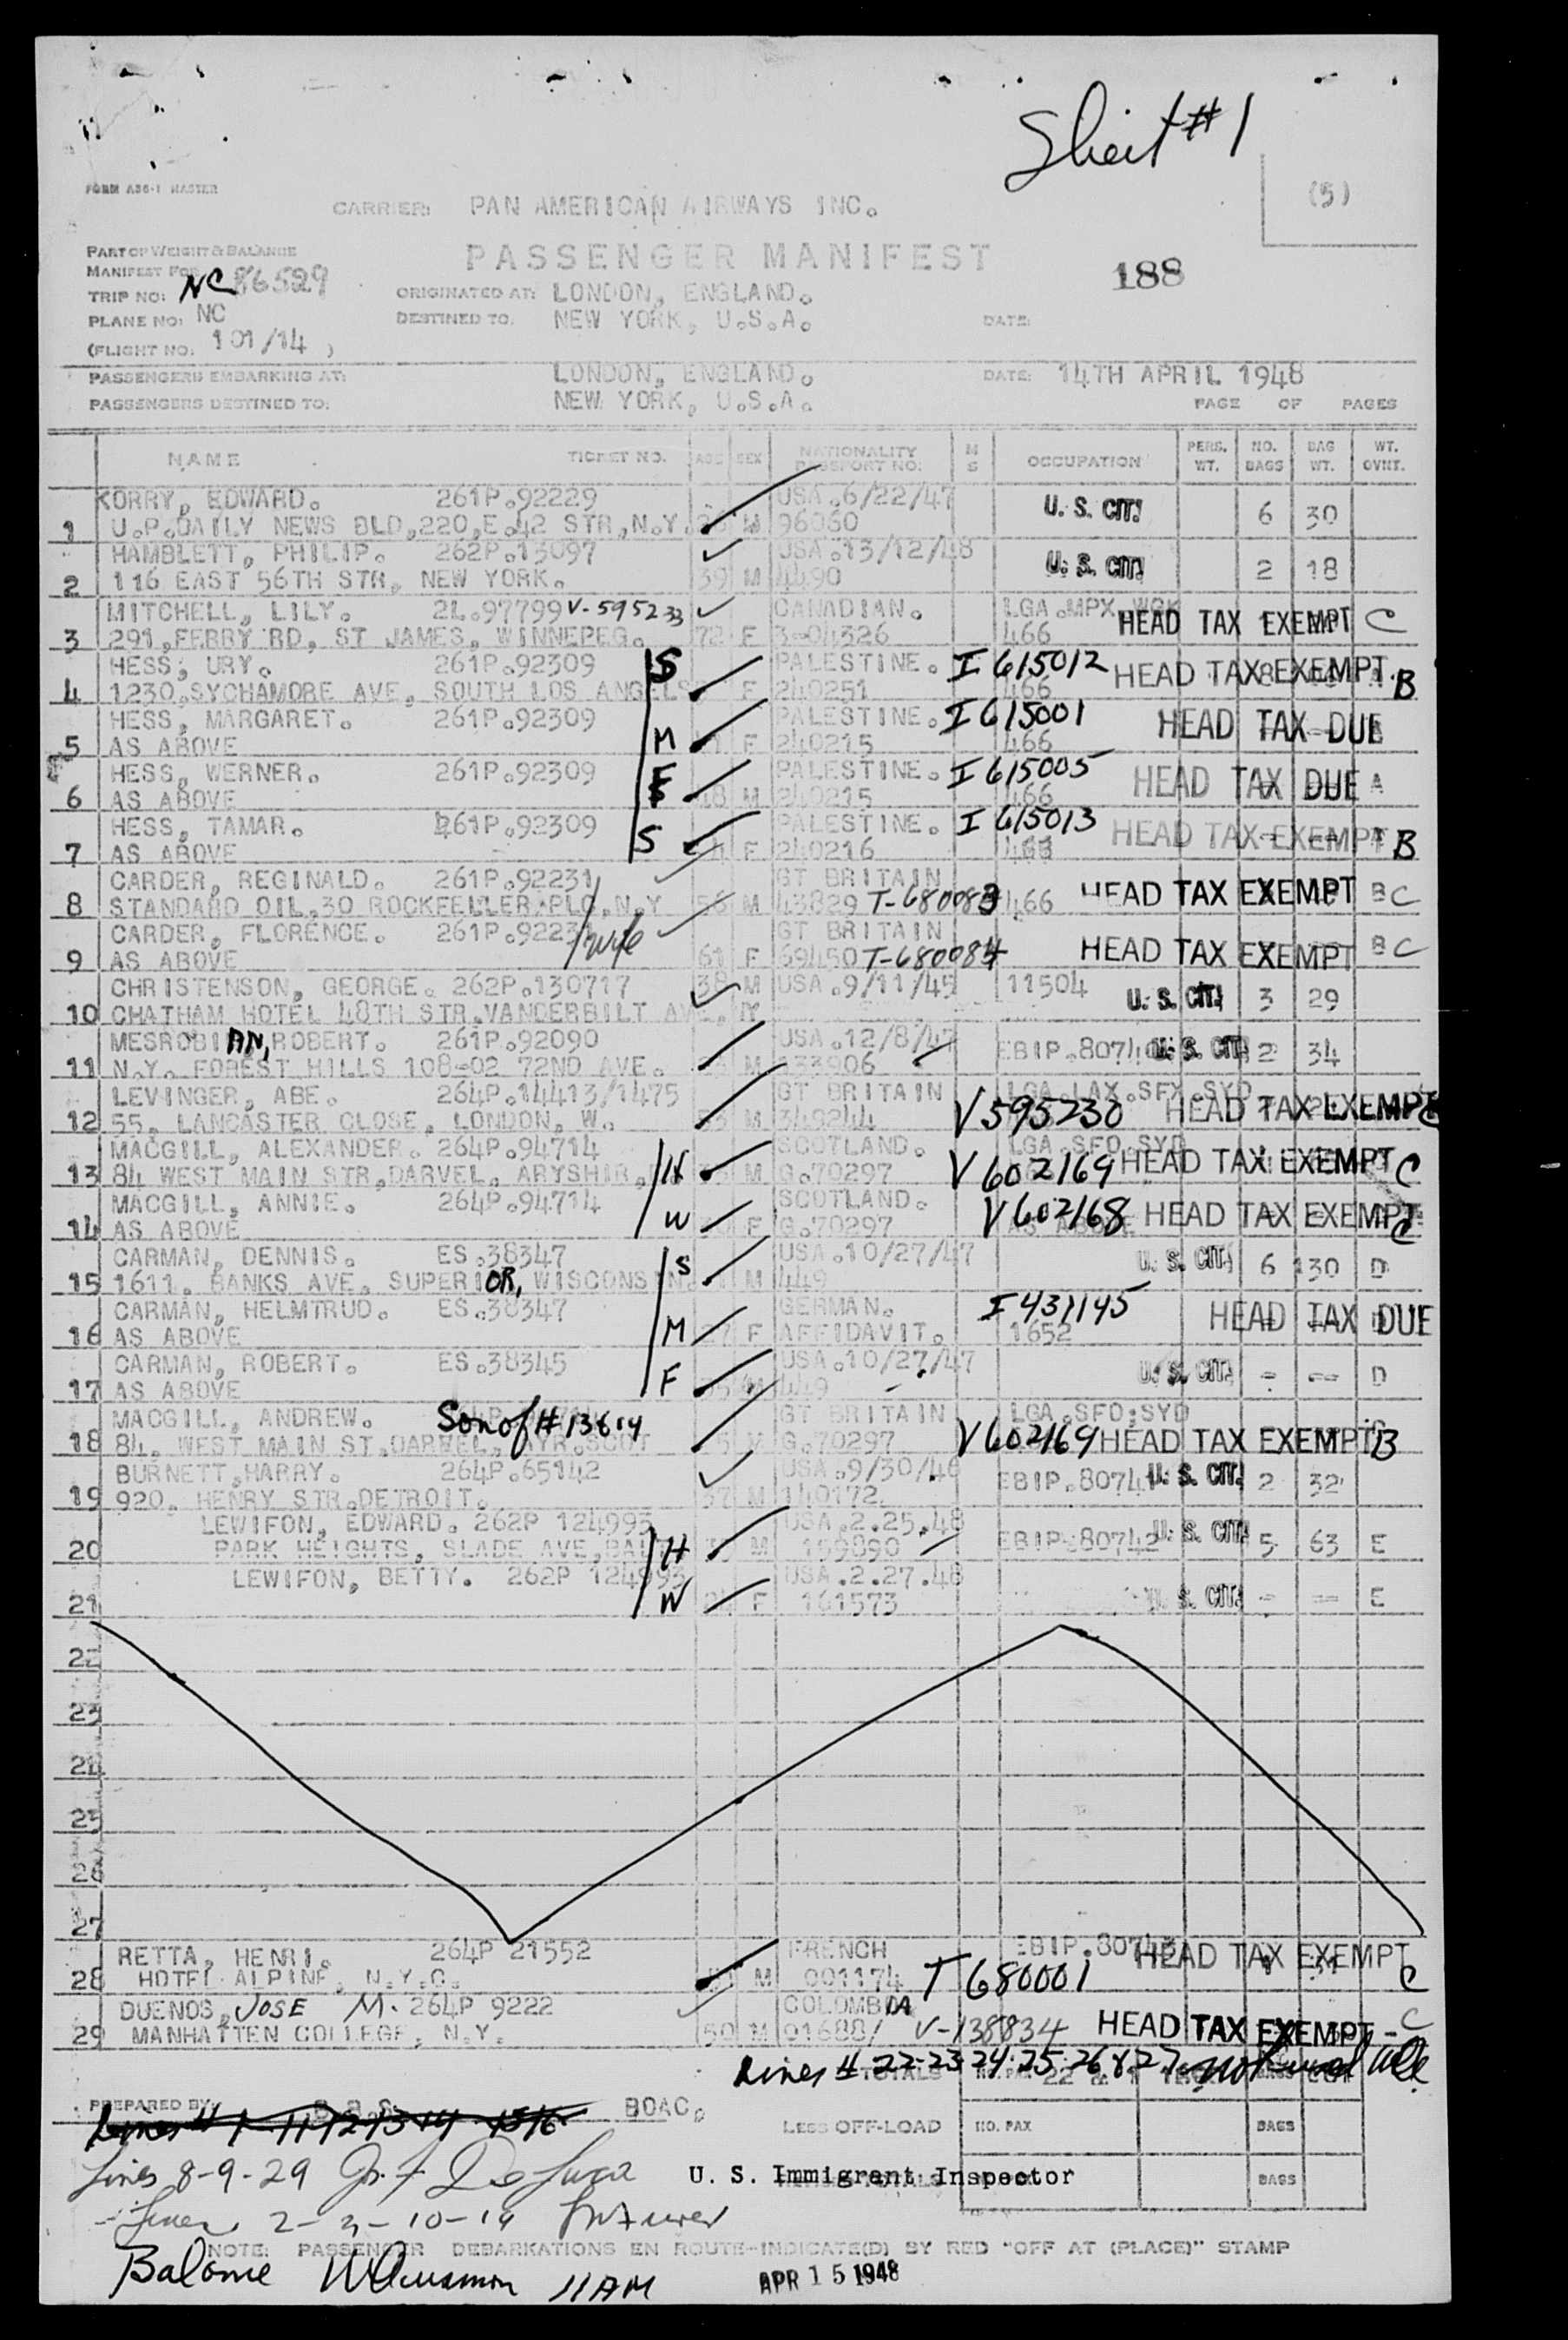 Sheet #1
FORM A86-1 MASTER
(5)
CARRIER: PAN AMERICAN AIRWAYS INC.
PART OF WEIGHT & BALANCE
PASSENGER MANIFEST
MANIFEST FOR
188
TRIP NO: NC 86529
ORIGINATED AT: LONDON, ENGLAND.
PLANE NO: NC
DESTINED TO. NEW YORK, U.S.A.
DATE:
(FLIGHT NO. 101/14 )
PASSENGERS EMBARKING AT: LONDON, ENGLAND. DATE: 14TH APRIL 1948
PASSENGERS DESTINED TO: NEW YORK, U.S.A. PAGE OF PAGES
NAME TICKET NO. AGE SEX NATIONALITY PASSPORT NO: M S OCCUPATION PERS. WT. NO. BAGS BAG WT. WT. OVNT.
KORRY, EDWARD. 261P.92229 USA.6/22/47 U. S. CIT. 6 30
1 U.P.DAILY NEWS BLD,220,E.42 STR,N.Y. M 96060
HAMBLETT, PHILIP. 262P.13097 USA.13/12/48 U. S. CIT. 2 18
2 116 EAST 56TH STR, NEW YORK. 39 M 4490
MITCHELL, LILY. 2L.97799 V-595233 CANADIAN. LGA.MPX.WGK HEAD TAX EXEMPT C
3 291,FERRY RD, ST JAMES, WINNEPEG. 72 F 3-04326 466
HESS, URY. 261P.92309 S PALESTINE. I 615012 HEAD TAX EXEMPT B
4 1230,SYCHAMORE AVE, SOUTH LOS ANGELS F 240251 466
HESS, MARGARET. 261P.92309 PALESTINE. I 615001 HEAD TAX DUE A
5 AS ABOVE M F 240215 466
HESS, WERNER. 261P.92309 F PALESTINE. I 615005 HEAD TAX DUE A
6 AS ABOVE 48 M 240215 466
HESS, TAMAR. 261P.92309 PALESTINE. I 615013 HEAD TAX EXEMPT B
7 AS ABOVE S F 240216 466
CARDER, REGINALD. 261P.92231 GT BRITAIN
8 STANDARD OIL,30 ROCKFELLER PLC,N.Y 56 M 43829 T-680083 466 HEAD TAX EXEMPT B C
CARDER, FLORENCE. 261P.9223 wife GT BRITAIN
9 AS ABOVE 61 F 69450 T-680084 HEAD TAX EXEMPT B C
CHRISTENSON, GEORGE. 262P.130717 38 M USA.9/11/45 11504 U. S. CIT. 3 29
10 CHATHAM HOTEL 48TH STR.VANDERBILT AVE, NY
MESROBIAN, ROBERT. 261P.92090 USA.12/8/47 EBIP.80740 U. S. CIT. 2 34
11 N.Y. FOREST HILLS 108-02 72ND AVE. M 133906
LEVINGER, ABE. 264P.14413/1475 GT BRITAIN LGA.LAX.SFX.SYD
12 55. LANCASTER CLOSE, LONDON, W. M 349244 V595230 HEAD TAX EXEMPT C
MACGILL, ALEXANDER. 264P.94714 SCOTLAND. LGA.SFO.SYD
13 84 WEST MAIN STR,DARVEL, ARYSHIR, H M G.70297 V 602169 HEAD TAX EXEMPT C
MACGILL, ANNIE. 264P.94714 SCOTLAND. V602168 HEAD TAX EXEMPT C
14 AS ABOVE W F G.70297 AS ABOVE
CARMAN, DENNIS. ES.38347 S USA.10/27/47 U. S. CIT. 6 130 D
15 1611. BANKS AVE. SUPERIOR, WISCONSIN. M 449
CARMAN, HELMTRUD. ES.38347 GERMAN. I 431145 HEAD TAX DUE
16 AS ABOVE M 27 F AFFIDAVIT. 1652
CARMAN, ROBERT. ES.38345 USA.10/27/47 U. S. CIT. - -- D
17 AS ABOVE F M 449
MACGILL, ANDREW. Son of # 13 & 14 GT BRITAIN LGA.SFO.SYD
18 84. WEST MAIN ST.DARVEL, AYR.SCOT G.70297 V602169 HEAD TAX EXEMPT B
BURNETT,HARRY. 264P.65142 USA.9/30/46 EBIP.80741 U. S. CIT. 2 32
19 920. HENRY STR.DETROIT. 37 M 140172
LEWIFON, EDWARD. 262P 124993 USA.2.25.48
20 PARK HEIGHTS, SLADE AVE,BAL H M 159890 EBIP.80742 U. S. CIT. 5 63 E
LEWIFON, BETTY. 262P 124993 USA.2.27.48
21 W F 161573 U. S. CIT. - -- E
22
23
24
25
26
27
RETTA, HENRI. 264P 21552 FRENCH HEAD TAX EXEMPT
28 HOTEL ALPINE, N.Y.C. M 001174 T 680001 C
DUENOS, JOSE M. 264P 9222 COLOMBIA
29 MANHATTEN COLLEGE, N.Y. 50 M 01688/ V-138834 HEAD TAX EXEMPT - C
Lines # 22-23-24-25-26 & 27 not used
TOTALS 22 BAGS
PREPARED BY: BOAC.
LESS OFF-LOAD NO. PAX BAGS
Lines 8-9-29
U. S. Immigrant Inspector BAGS
NOTE: PASSENGER DEBARKATIONS EN ROUTE-INDICATE(D) BY RED "OFF AT (PLACE)" STAMP
11 AM
APR 15 1948